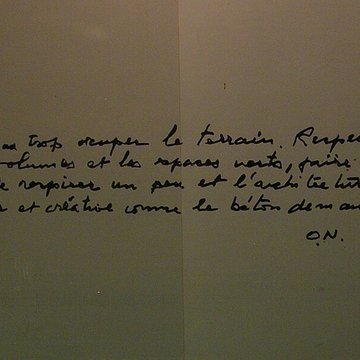 as trop occuper le terrain. Respec
volumes et les espaces verts, faire
e respirer un peu et l'architectu
e et créative comme le béton deman
O.N.